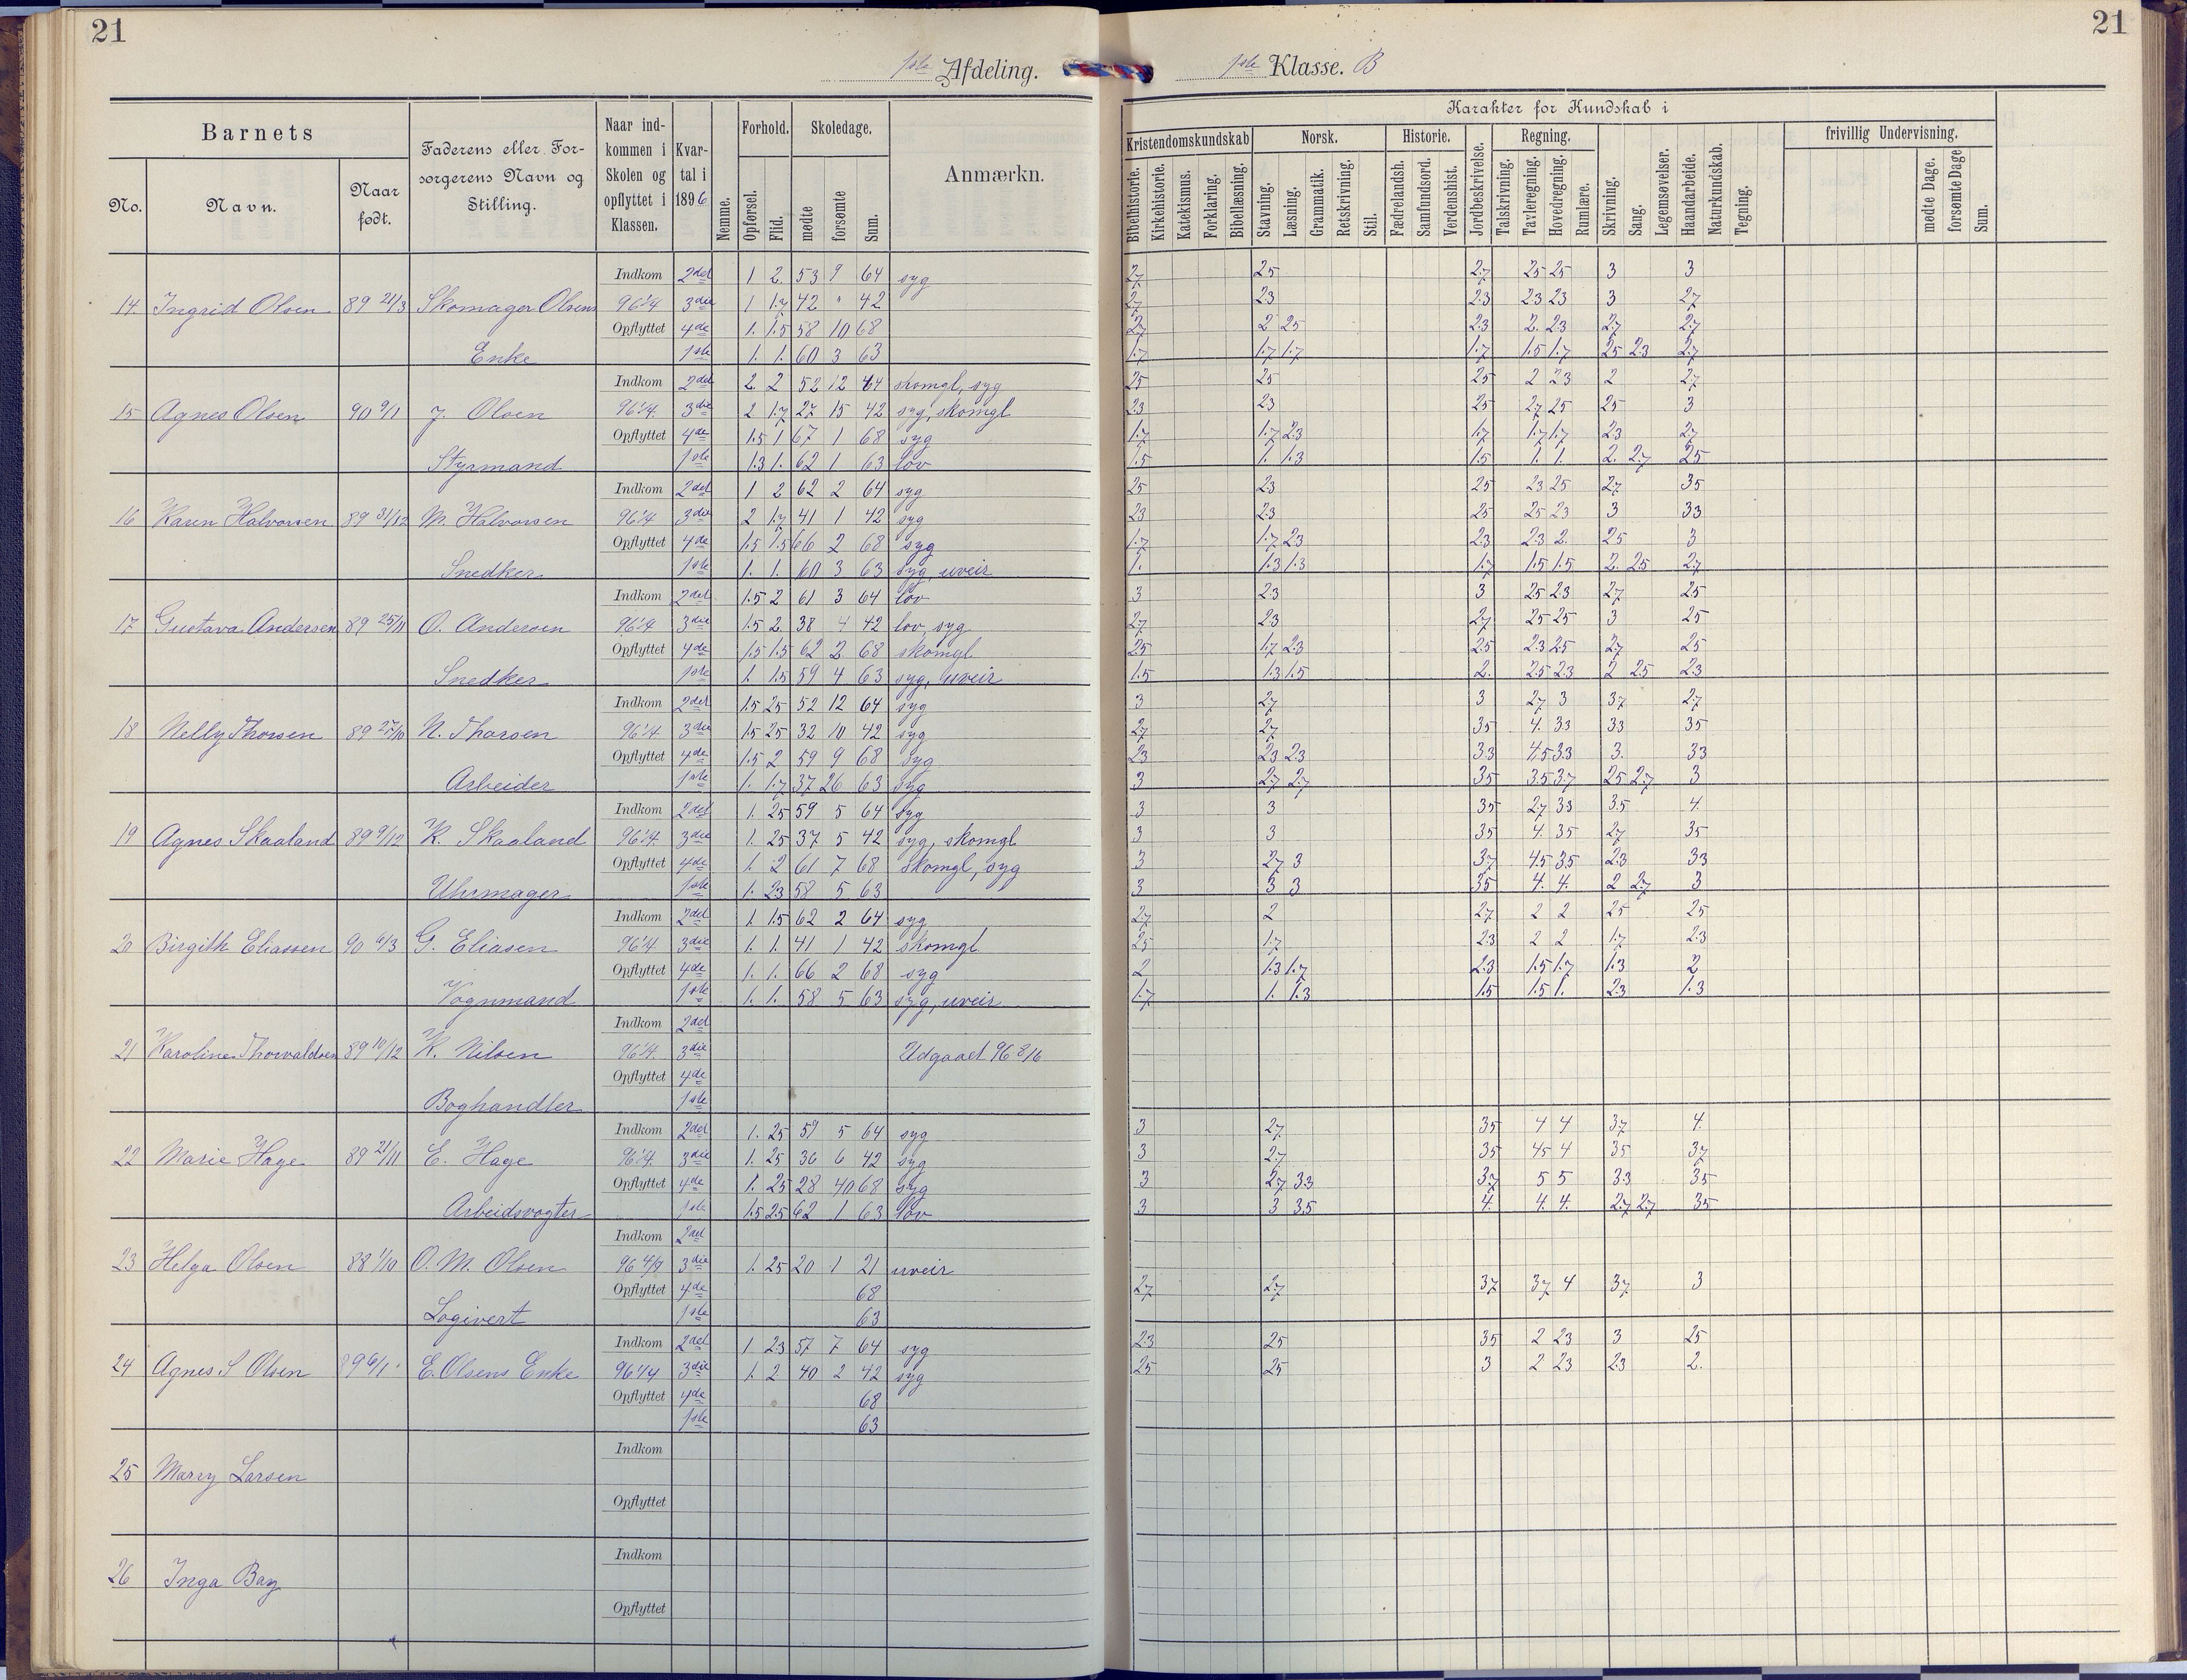 21
21
1ste Afdeling.
1ste Klasse. B
Barnets
No.
Navn.
Naar født.
Faderens eller Forsørgerens Navn og Stilling.
Naar indkommen i Skolen og opflyttet i Klassen.
Kvartal i 1896
Nemme.
Forhold.
Opførsel.
Flid.
Skoledage.
mødte
forsømte
Sum.
Anmærkn.
Karakter for Kundskab i
Kristendomskundskab
Bibelhistorie.
Kirkehistorie.
Katekismus.
Forklaring.
Bibellæsning.
Norsk.
Stavning.
Læsning.
Grammatik.
Retskrivning.
Stil.
Historie.
Fædrelandsh.
Samfundsord.
Verdenshist.
Jordbeskrivelse.
Regning.
Talskrivning.
Tavleregning.
Hovedregning.
Rumlære.
Skrivning.
Sang.
Legemsøvelser.
Haandarbeide.
Naturkundskab.
Tegning.
frivillig Undervisning.
mødte Dage.
forsømte Dage
Sum.
Indkom 2det 1 2. 53 9 64 syg 2.7 25 2.7 25 25 3 3
14. Ingrid Olsen 89 21/3 Skomager Olsens 96 1/4 3die 1 1.7 42 " 42 2.7 23 23 23 23 3 2.7
Opflyttet 4de 1. 1.5 58 10 68 2.7 2 25 23 2. 23 2.7 2.7
Enke 1ste 1. 1. 60 3 63 1.7 1.7 1.7 1.7 1.5 1.7 25 23 2.7
Indkom 2det 2. 2 52 12 64 skomgl, syg 25 25 25 2 23 2 2.7
15 Agnes Olsen 90 9/1 J. Olsen 96 1/4. 3die 2 1.7 27 15 42 syg, skomgl 23 23 25 27 25 25 3
Opflyttet 4de 1.5 1 67 1 68 syg 1.7 1.7 23 1.7 1.7 1.7 23 2.7
Styrmand 1ste 1.3 1. 62 1 63 lov 1.5 1. 1.3 1.5 1. 1. 2. 2.7 25
Indkom 2det 1 2 62 2 64 syg 25 23 25 23 25 2.7 35
16 Karen Halvorsen 89 31/12 M. Halvorsen 96 1/4 3die 2 1.7 41 1 42 syg 23 23 25 25 23 3 33
Opflyttet 4de 1.5 1.5 66 2 68 syg 1.7 1.7 23 23 23 2. 25 3
Snedker 1ste 1. 1. 60 3 63 syg, uveir 1. 1.3 1.3 1.7 1.5 1.5 2. 25 2.7
Indkom 2det 1.5 2 61 3 64 lov 3 23 3 25 23 27 25
17 Gustava Andersen 89 25/11 O. Andersen 96 1/4 3die 1.5 2. 38 4 42 lov, syg 2.7 23 2.7 25 25 3 25
Opflyttet 4de 1.5 1.5 62 2. 68 skomgl 25 1.7 23 25 23 25 2.7 25
Snedker 1ste 1. 1.5 59 4 63 syg, uveir 1.5 1.3 1.5 2. 25 23 2 25 23
Indkom 2det 1.5 25 52 12 64 syg 3 27 3 27 3 37 27
18 Nelly Thorsen 89 27/10 N. Thorsen 96 1/4 3die 1.5 25 32 10 42 syg 27 27 35 4. 33 33 35
Opflyttet 4de 1.5 2 59 9 68 syg 23 23 23 33 45 33 3. 33
Arbeider 1ste 1. 1.7 37 26 63 syg 3 2.7 2.7 35 35 37 25 2.7 3
Indkom 2det 1. 25 59 5 64 syg 3 3 35 27 33 35 4.
19 Agnes Skaaland 89 9/12 K. Skaaland 96 1/4. 3die 1. 25 37 5 42 syg, skomgl 3 3 35 4. 35 27 35
Opflyttet 4de 1. 2 61 7 68 skomgl, syg 3 27 3 37 45 35 23 33
Uhrmager 1ste 1. 23 58 5 63 3 3 3 35 4. 4. 2 2.7 3
Indkom 2det 1 1.5 62 2 64 syg 2.7 2 2.7 2 2 25 25
20 Birgith Eliassen 90 6/3 G. Eliasen 96 1/4 3die 1. 1. 41 1 42 skomgl 25 1.7 23 2 2 1.7 23
Opflyttet 4de 1. 1. 66 2 68 syg 2 1.3 1.7 23 1.5 1.7 1.3 2
Vognmand 1ste 1. 1. 58 5 63 syg, uveir 1.7 1. 1.3 1.5 1.5 1. 23 1.3
Indkom 2det
21 Karoline Thorvaldsen 89 10/12 K. Nilsen 96 1/4. 3die Udgaaet 96 8/6
Opflyttet 4de
Boghandler 1ste
Indkom 2det 1. 25 59 5 64 syg 3 27 35 4 4 37 4.
22 Marie Hage 89 21/11 E. Hage 96 1/4. 3die 1. 25 36 6 42 syg 3 27 35 45 4 35 37
Opflyttet 4de 1. 25 28 40 68 syg 3 27 33 37 5 5 33 35
Arbeidsvogter 1ste 1.5 25 62 1 63 lov 3 3 35 4. 4. 4. 2.7 2.7 35
Indkom 2det
23 Helga Olsen 88 1/10 O. M. Olsen 96 4/9 3die 1. 25 20 1 21 uveir
Opflyttet 4de 68 27 27 37 37 4 37 3
Logivert 1ste 63
Indkom 2det 1 23 57 7 64 syg 23 25 35 2 23 3 25
24 Agnes S Olsen 89 6/1 E. Olsens Enke 96 1/4 3die 1. 2 40 2 42 syg 25 25 3 2 23 23 2.
Opflyttet 4de 68
1ste 63
Indkom
25 Marry Larsen
Opflyttet
Indkom
26 Inga Bay
Opflyttet